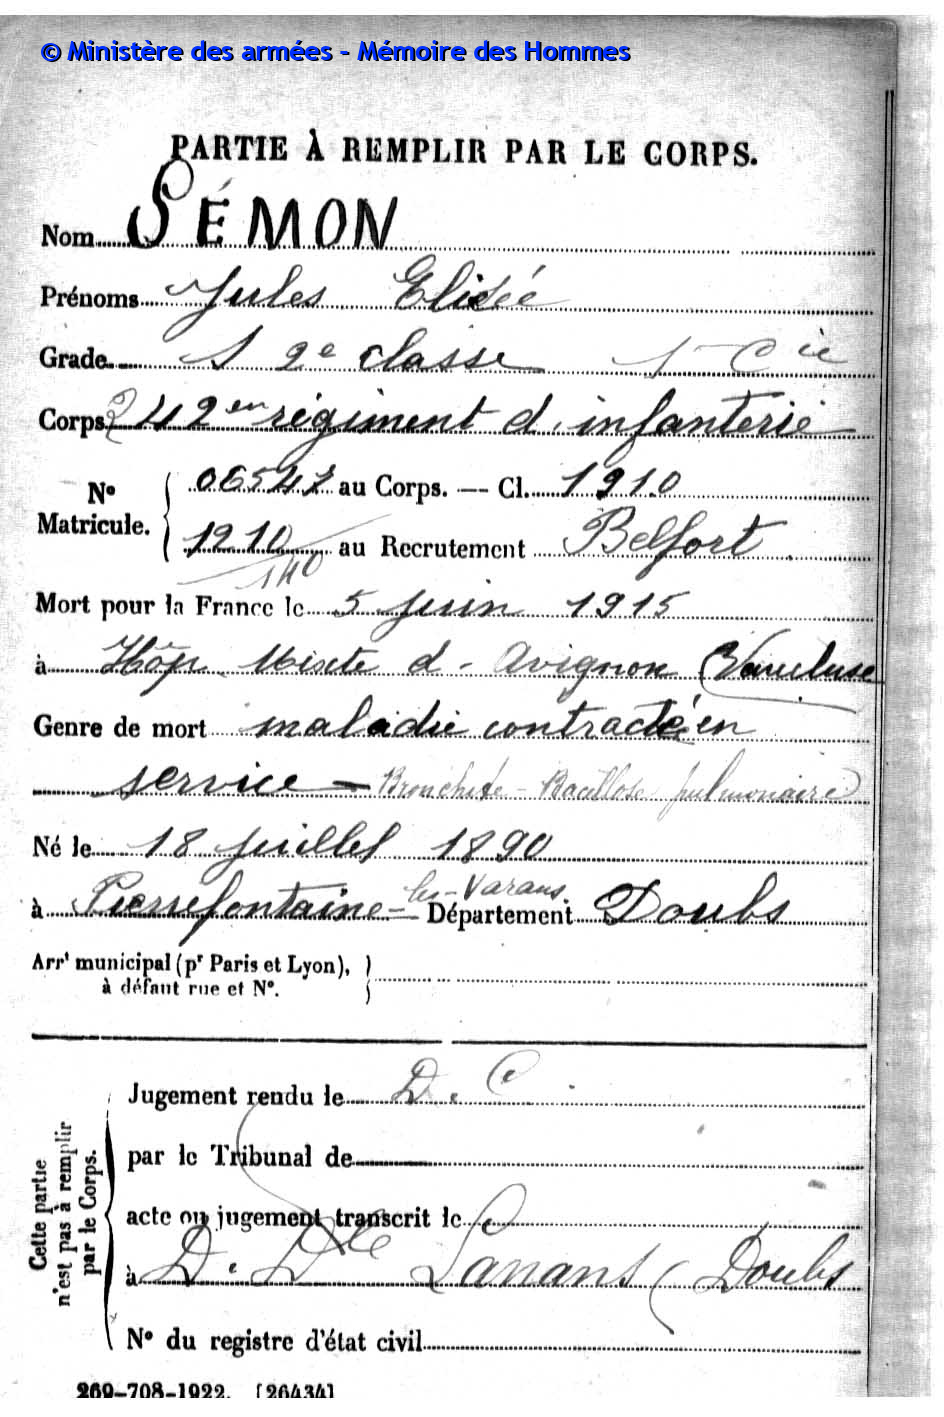 © Ministère des armées - Mémoire des Hommes
PARTIE À REMPLIR PAR LE CORPS.
Nom SÉMON
Prénoms Jules Elisée
Grade S 2e classe 1 Cie
Corps 242 en régiment d'infanterie
No Matricule. 06547 au Corps. — Cl. 1910
1210 au Recrutement Belfort
140
Mort pour la France le 5 juin 1915
à Hôp. Mixte d'Avignon (Vaucluse
Genre de mort maladie contractée en
service — Bronchite - Bacillose pulmonaire
Né le 18 juillet 1890
à Pierrefontaine-les-Varans Département Doubs
Arrt municipal (pr Paris et Lyon),
à défaut rue et No.
Cette partie n'est pas à remplir par le Corps.
Jugement rendu le D. C.
par le Tribunal de
acte ou jugement transcrit le
à D. Dle Lanans (Doubs
No du registre d'état civil
269-708-1922. [26434]